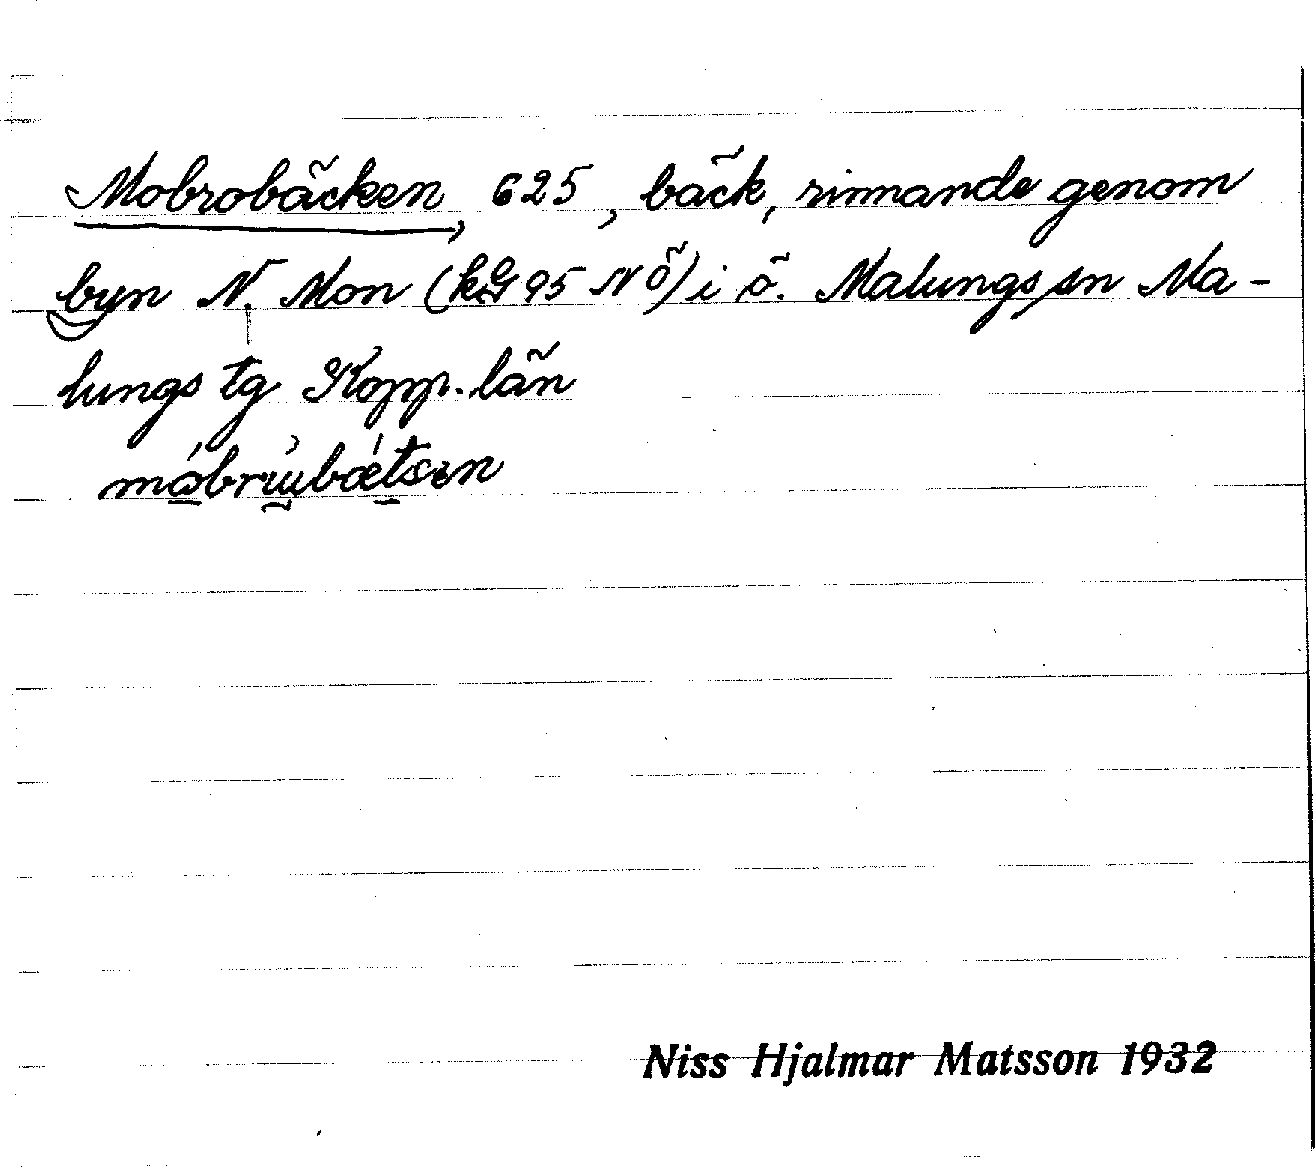 Mobrobäcken, 625, bäck, rinnande genom
byn N. Mon (kG 95 NÖ) i ö. Malungs sn Ma-
lungs tg Kopp. län
Niss Hjalmar Matsson 1932